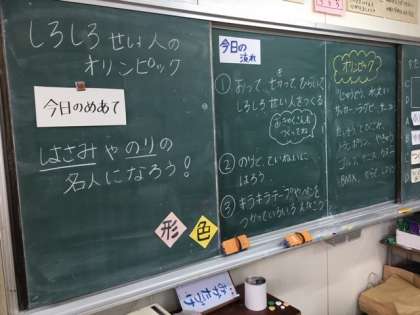 しろしろせい人の
オリンピック
今日のめあて
はさみやのりの
名人になろう！
形
色
今日の
流れ
① おって、きってひらいて
しろしろせい人をつくる
おきゃくさんも
つくってね
② のりで、ていねいに
はろう
③ キラキラテープやペンを
つかって
オリンピック
じゅうどう、水えい
サッカー、ラグビー
たっきゅう
トランポリン
ゴルフ、テニス
BMX
おかたづけ